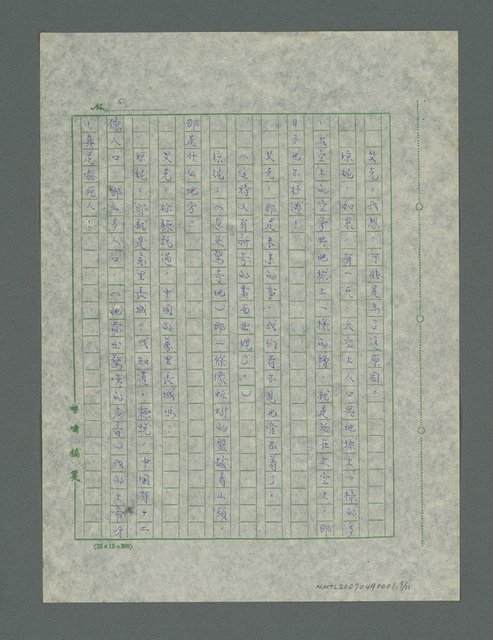 No. 6
艾克:我想,可能是為了這原因?
琼妮:如果,有一天,太空上人口與地球上一樣的多
,太空上的空氣與地球上一樣的糟,就是活在太空上,那
日子也不好過!
艾克:那是未來的事,我們看不見也管不着了。
(這時又有新奇的畫面出現了。)
琼妮:(惠然驚奇地)那一條像蚯蚓的盤據着山頭,
那是什么地方?
艾克:妳聽說過,中國的萬里長城嗎?
琼妮:那就是萬里長城?我知道,聽說,中國有十二
億人口,那么多人口,(她發出驚嘆的聲音)我的上帝呀
!真是嚇死人!
呼嘯稿箋
(25×12=300)
NMTL20070490001 5/11